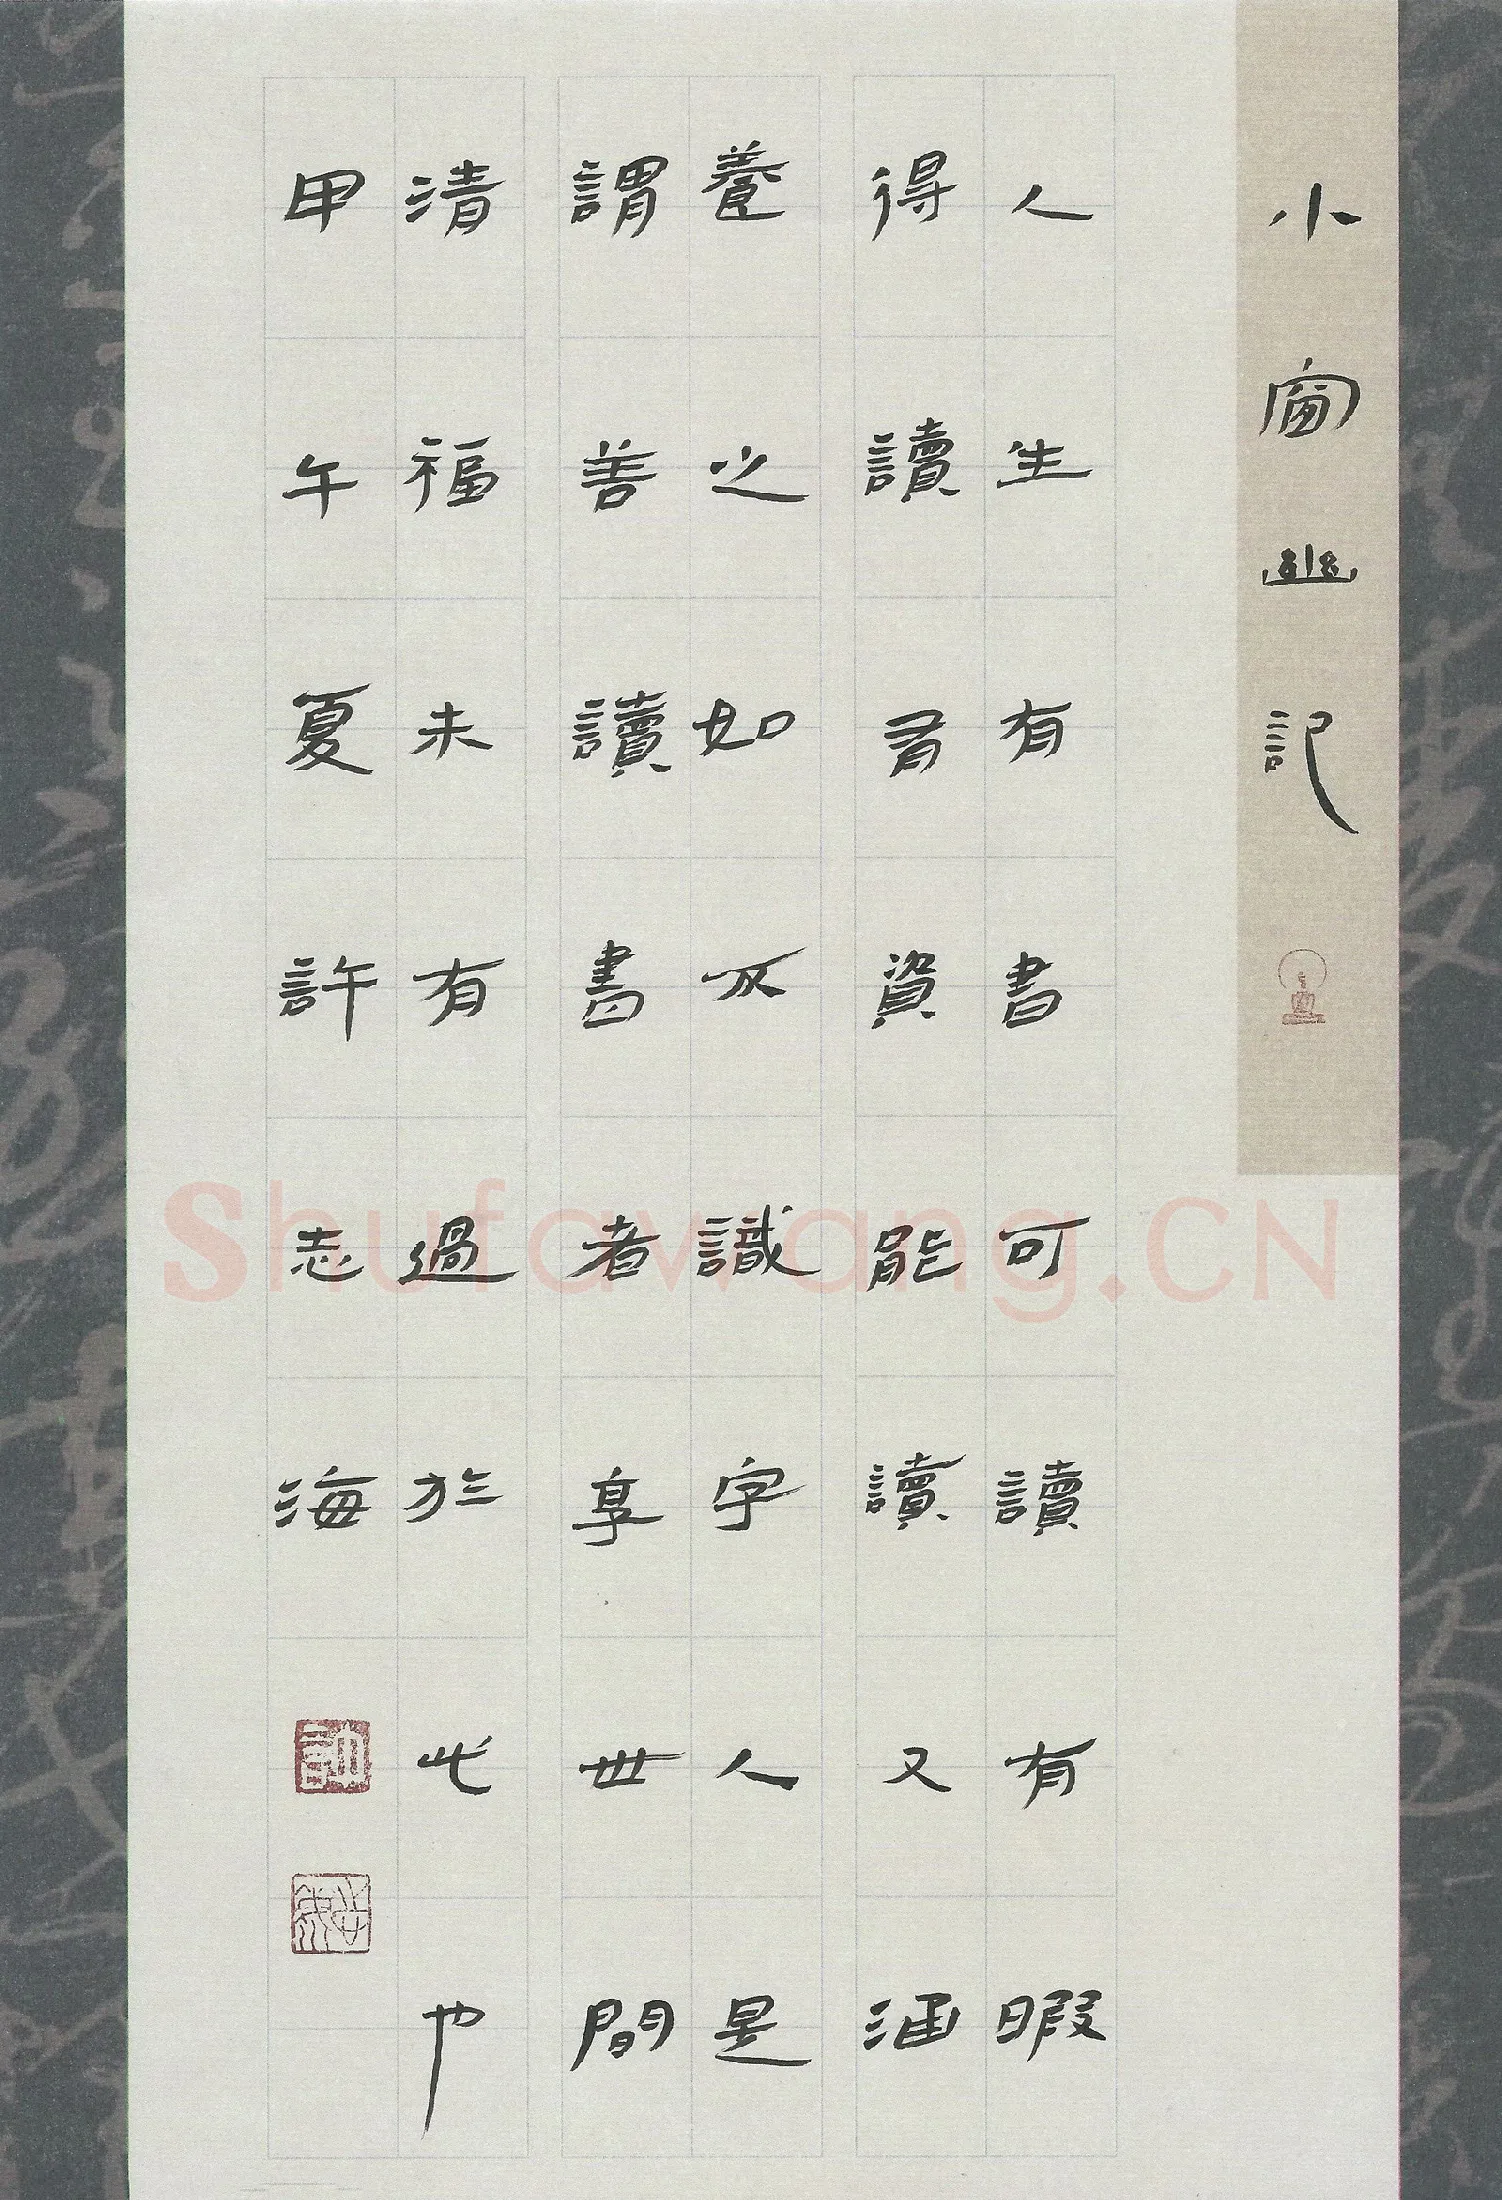 小窗幽記
人生有書可讀有暇
得讀有資能讀又涵
養之如不識字人是
謂善讀書者享世間
清福未有過於此也
甲午夏許志海
Shufawang.CN